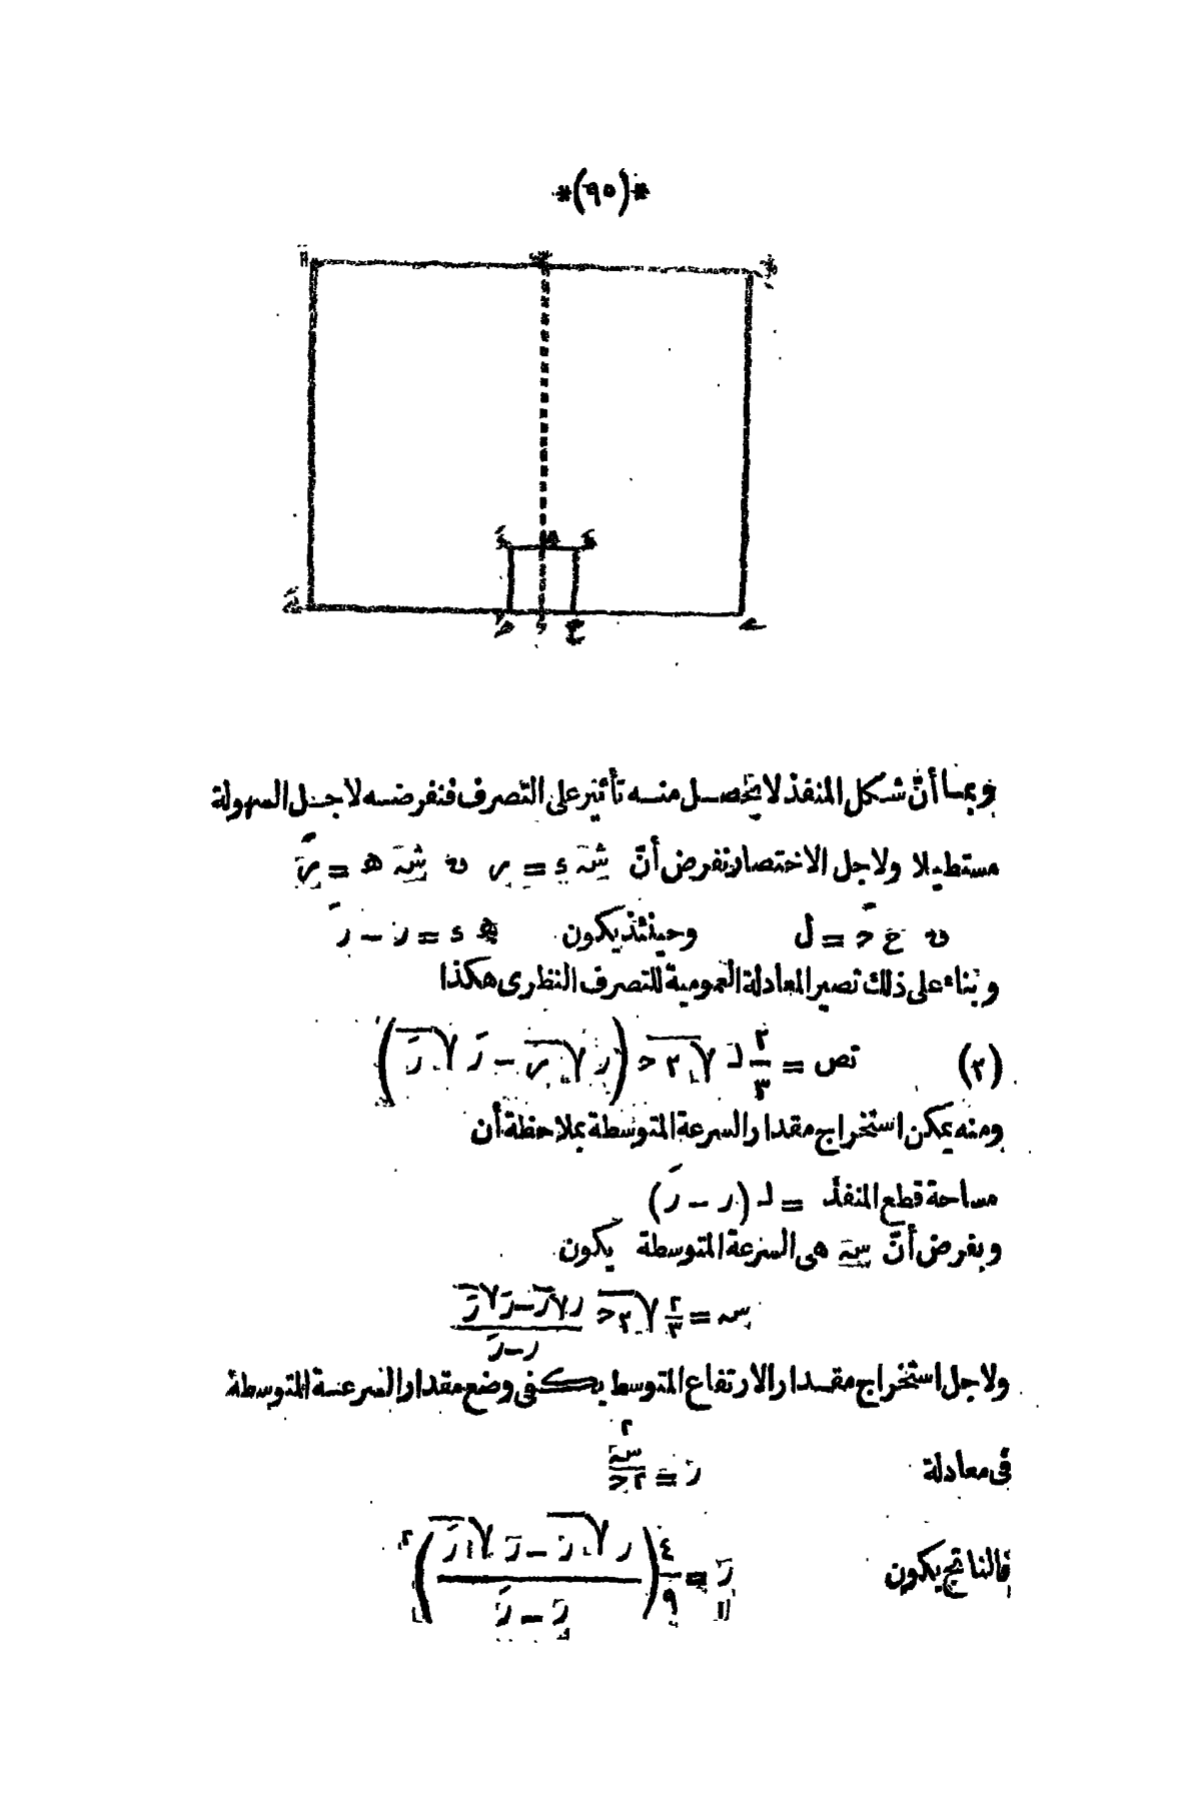 *(٩٥)*
وبما أنّ شكل المنفذ لا يتحصل منه تأثير على التصرف فنفرضه لاجل السهولة
مستطيلا ولاجل الاختصار نفرض أنّ شـ ء = ر و شـ هـ = رَ
و ع حَ = ل وحينئذ يكون هـ ء = ر − رَ
وبناء على ذلك تصير المعادلة العمومية للتصرف النظرى هكذا
(٢) تص = ٢/٣ ل √٢ح (ر √ر − رَ √رَ)
ومنه يمكن استخراج مقدار السرعة المتوسطة بملاحظة أن
مساحة قطع المنفذ = ل (ر − رَ)
وبفرض أنّ سـ هى السرعة المتوسطة يكون
سـ = ٢/٣ √٢ح (ر√ر − رَ√رَ)/(ر − رَ)
ولاجل استخراج مقدار الارتفاع المتوسط يكفى وضع مقدار السرعة المتوسطة
فى معادلة ر = سـ٢/٢ح
فالناتج يكون رً = ٤/٩ ((ر √ر − رَ √رَ)/(ر − رَ))٢